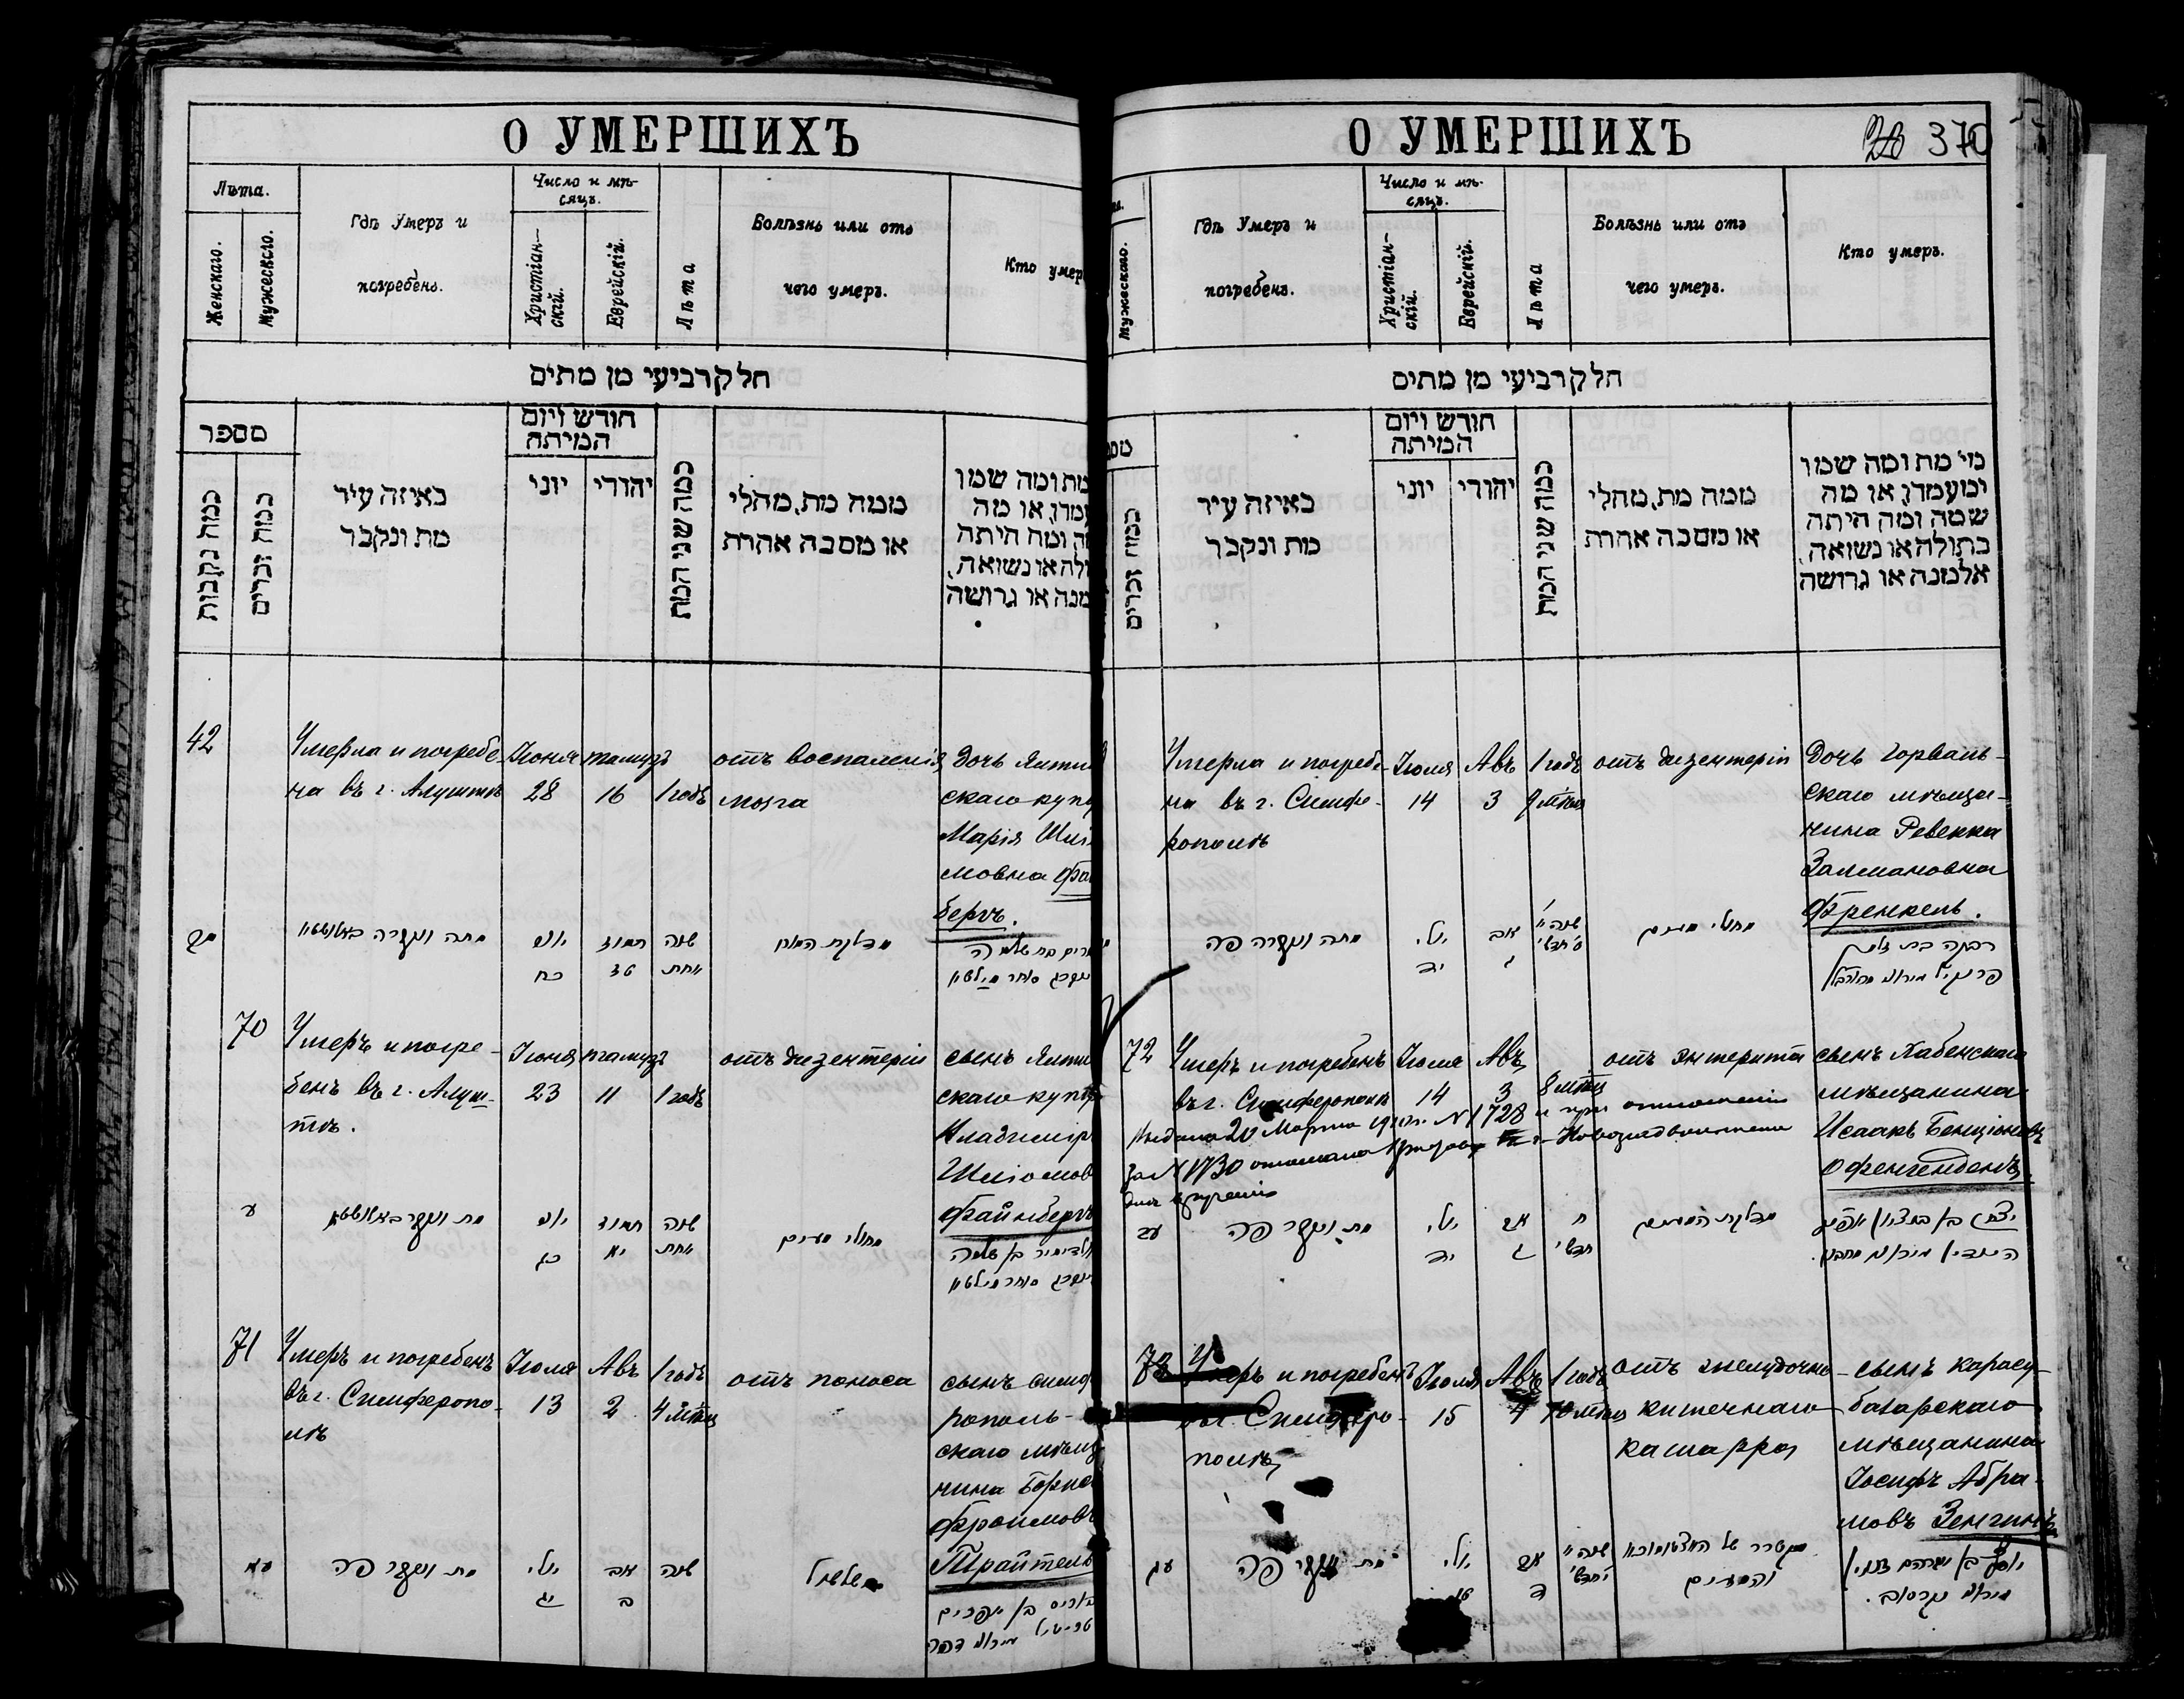 О УМЕРШИХЪ
Лѣта.
Женскаго.
Мужескаго.
Гдѣ Умеръ и
погребенъ.
Число и мѣ-
сяцъ.
Христіан-
скій.
Еврейскій.
Лѣта
Болѣзнь или отъ
чего умеръ.
Кто умер
חלק רביעי מן מתים
מספר
כמה נקבות
כמה זכרים
באיזה עיר
מת ונקבר
חודש ויום
המיתה
יוני
יהודי
כמה שני המת
ממה מת, מחלי
או מסבה אחרת
מת ומה שמו
עמדו, או מה
ה ומה היתה
ולה או נשואה,
מנה או גרושה
42
Умерла и погребе-
на въ г. Алуштѣ
Іюня
28
тамузъ
16
1 годъ
отъ воспаленія
мозга
Дочь Ялтин
скаго купц
Марія Шлі
мовна Фай
бергъ.
מתה ונקברה באלושטא
יוני
כח
תמוז
טז
שנה
אחת
מדלקת המוח
מרים בת שלמה
70
Умеръ и погре-
бенъ въ г. Алуш-
тѣ.
Іюня
23
тамузъ
11
1 годъ
отъ дизентеріи
сынъ Ялтин
скаго купц
Владиміръ
Шліомов
Файнбергъ
ע
מת ונקבר באלושטא
יוני
כג
תמוז
יא
שנה
אחת
מחולי מעים
ולדימיר בן שלמה
71
Умеръ и погребенъ
въ г. Симферопо-
лѣ
Іюля
13
Авъ
2
1 годъ
4 мѣсяц
отъ поноса
сынъ симф
рополь-
скаго мѣщ
нина Борис
Фроимовъ
Трайтель
עא
מת ונקבר פה
יולי
יג
אב
ב
שנה
משלשול
בוריס בן אפרים
О УМЕРШИХЪ
370
Мужескаго.
Гдѣ Умеръ и
погребенъ.
Число и мѣ-
сяцъ.
Христіан-
скій.
Еврейскій.
Лѣта
Болѣзнь или отъ
чего умеръ.
Кто умеръ.
חלק רביעי מן מתים
מספ
כמה זכרים
באיזה עיר
מת ונקבר
חודש ויום
המיתה
יוני
יהודי
כמה שני המת
ממה מת, מחלי
או מסבה אחרת
מי מת ומה שמו
ומעמדו, או מה
שמה ומה היתה
בתולה או נשואה,
אלמנה או גרושה
Умерла и погребе-
на въ г. Симфе-
рополѣ
Іюля
14
Авъ
3
1 годъ
9 мѣсяц
отъ дизентеріи
Дочь горваль-
скаго мѣща-
нина Ревекка
Залмановна
Френкель.
מתה ונקברה פה
יולי
יד
אב
ג
שנה
ט׳ חדשי
מחולי מעים
רבקה בת זלמן
72
Умеръ и погребенъ
въ г. Симферополѣ
Іюля
14
Авъ
3
8 мѣсяц
отъ энтерита
сынъ Хабенскаго
мѣщанина
Исаакъ Бенціоновъ
Офенгенденъ
20 Марта № 1728 и при отношеніи
за № 1730
עב
מת ונקבר פה
יולי
יד
אב
ג
ח
חדשי
מדלקת המעים
יצחק בן בנציון
73
Умеръ и погребенъ
въ г. Симферо-
полѣ
Іюля
15
Авъ
4
1 годъ
10 мѣсяц
отъ желудочно-
кишечнаго
катарра
сынъ карасу-
базарскаго
мѣщанина
Іосифъ Абра-
мовъ Зенгинъ
עג
מת ונקבר פה
יולי
טו
אב
ד
שנה
י׳ חדשי
והמעים
יוסף בן אברהם